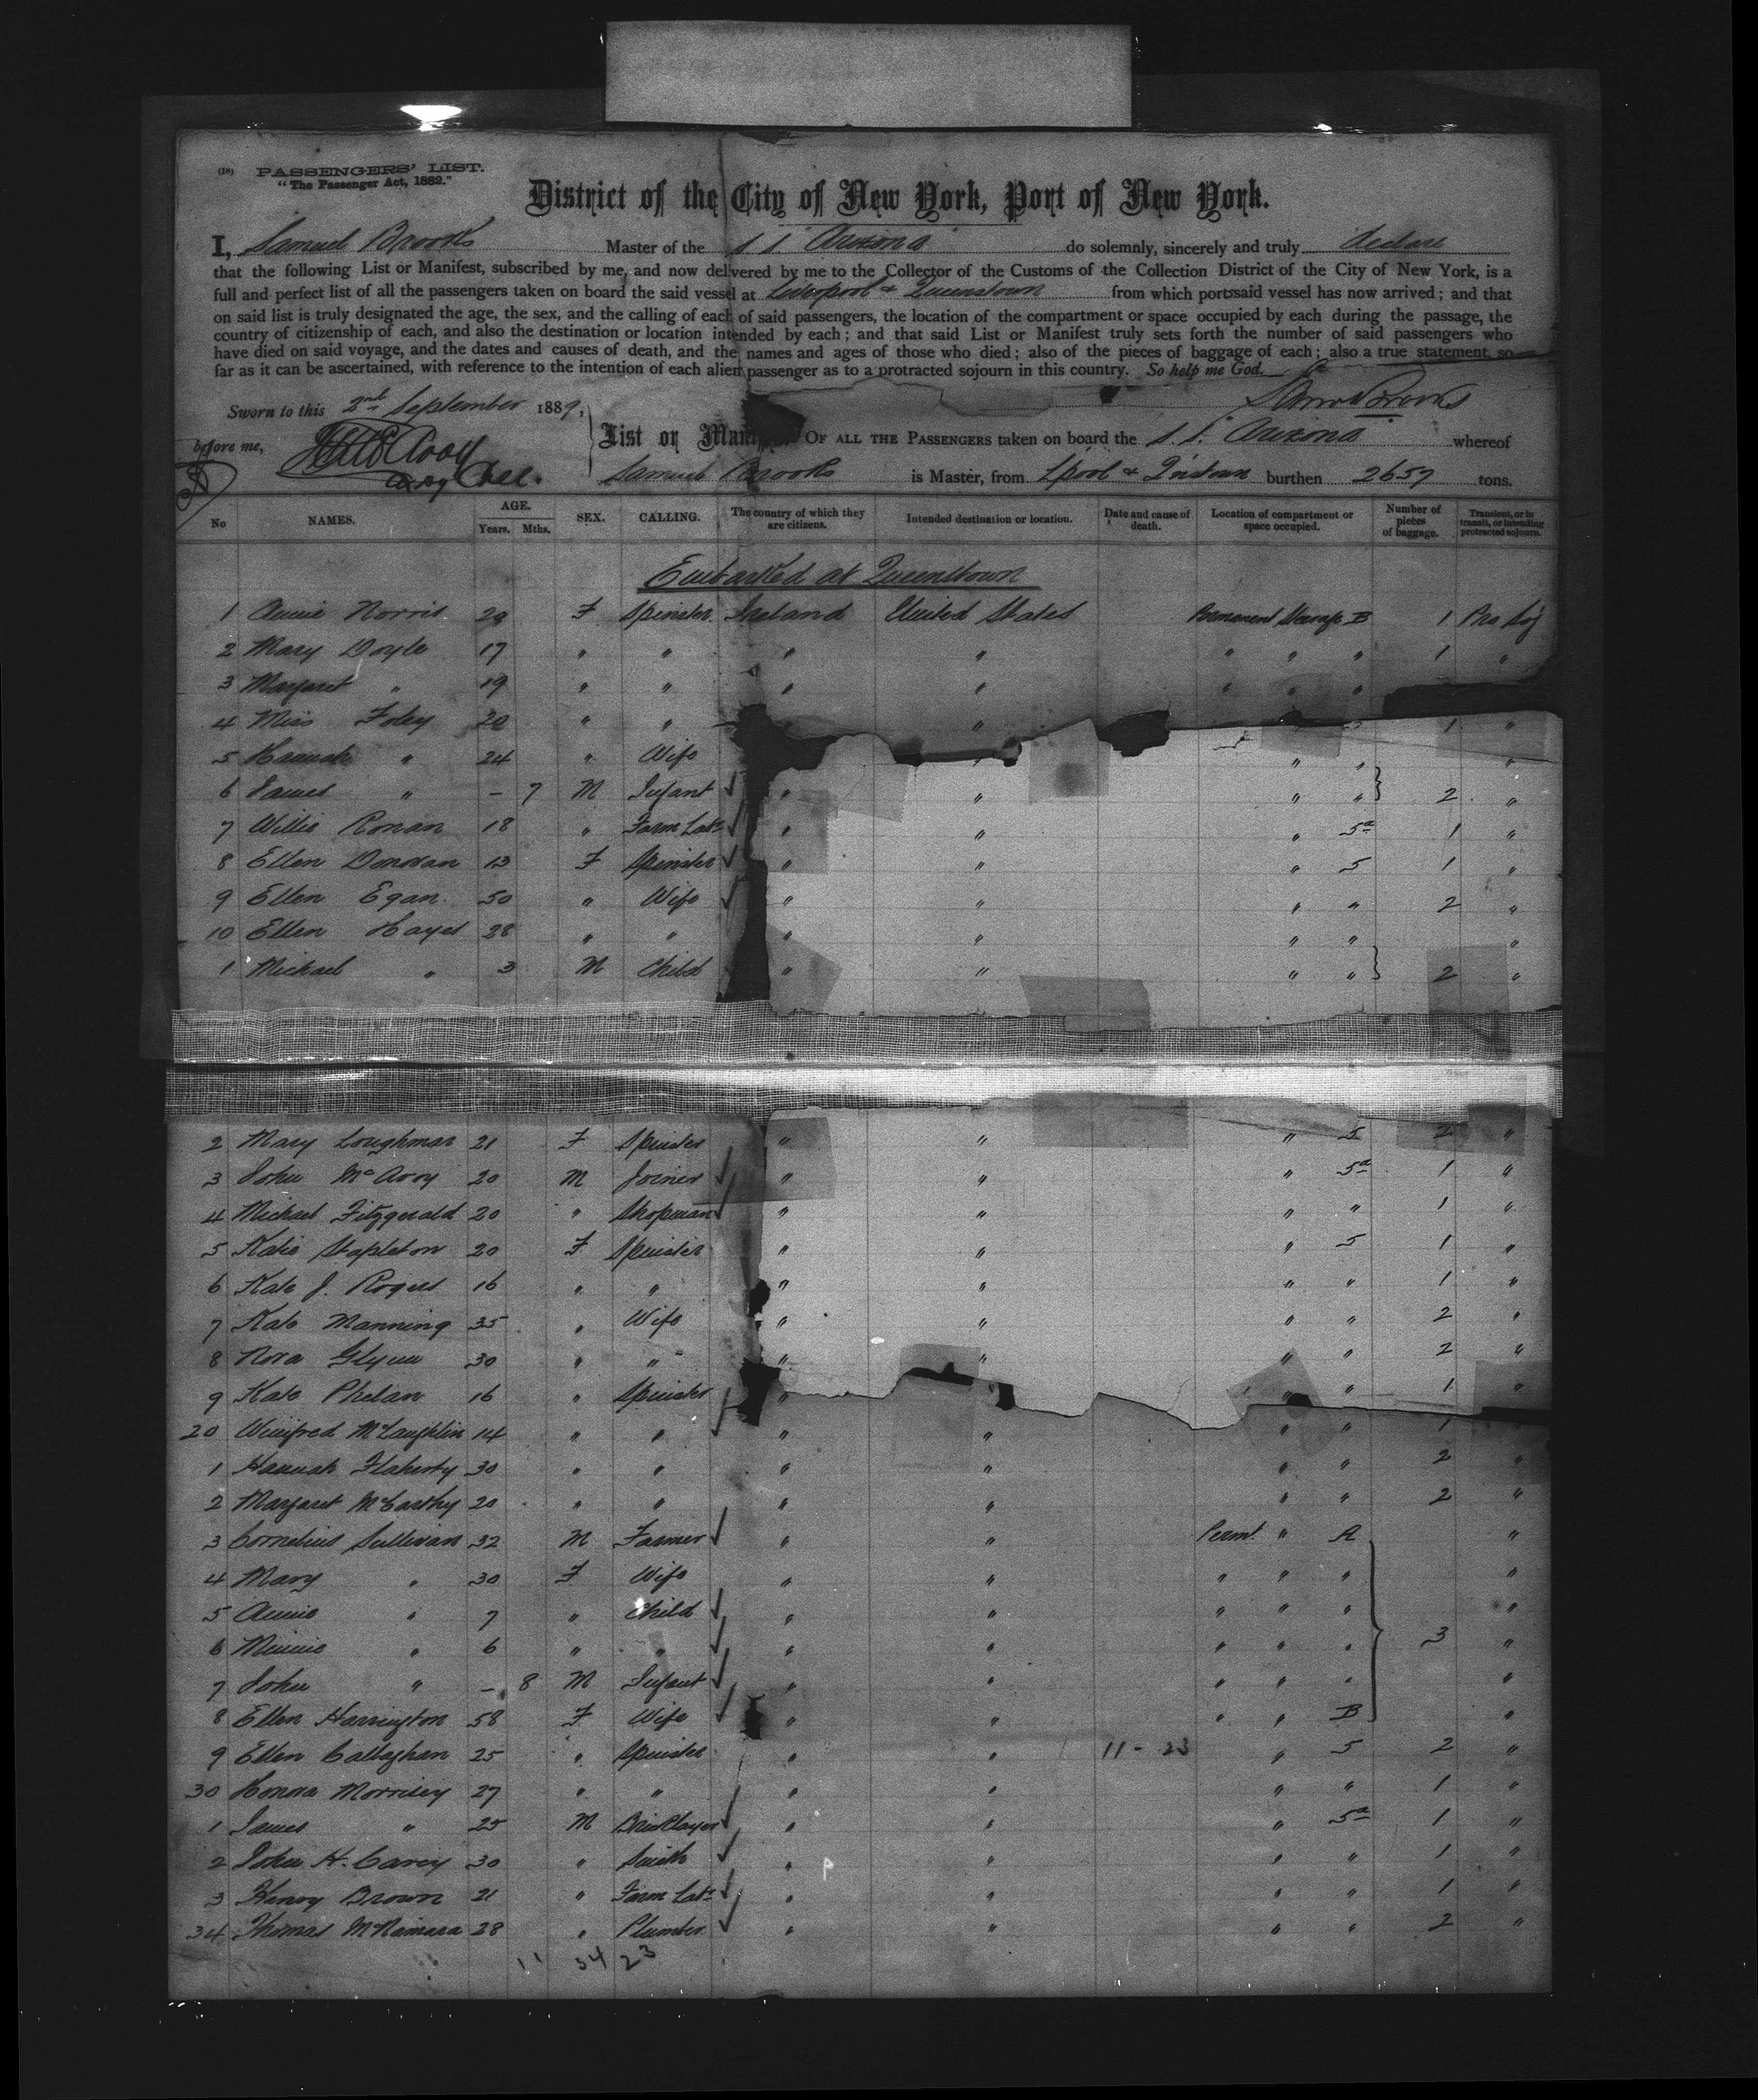 (18) PASSENGERS' LIST.
"The Passenger Act, 1882."
District of the City of New York, Port of New York.
I, Samuel Brooks Master of the S. S. "Arizona" do solemnly, sincerely and truly declare
that the following List or Manifest, subscribed by me, and now delivered by me to the Collector of the Customs of the Collection District of the City of New York, is a
full and perfect list of all the passengers taken on board the said vessel at Liverpool & Queenstown from which ports said vessel has now arrived; and that
on said list is truly designated the age, the sex, and the calling of each of said passengers, the location of the compartment or space occupied by each during the passage, the
country of citizenship of each, and also the destination or location intended by each; and that said List or Manifest truly sets forth the number of said passengers who
have died on said voyage, and the dates and causes of death, and the names and ages of those who died; also of the pieces of baggage of each; also a true statement, so
far as it can be ascertained, with reference to the intention of each alien passenger as to a protracted sojourn in this country. So help me God.
Saml Brooks
Sworn to this 2nd September 1889,
before me,
List or Mani OF ALL THE PASSENGERS taken on board the S. S. "Arizona" whereof
Samuel Brooks is Master, from L'pool & Q'nstown burthen 2657 tons.
No NAMES. AGE. Years. Mths. SEX. CALLING. The country of which they are citizens. Intended destination or location. Date and cause of death. Location of compartment or space occupied. Number of pieces of baggage. Transient, or in transit, or intending protracted sojourn.
Embarked at Queenstown
1 Annie Norris 28 F Spinster Ireland United States Permanent Steerage B 1 Pro Soj
2 Mary Doyle 17 " " " " " " " 1 "
3 Margaret " 19 " " " " " " "
4 Miss Foley 20 " " " " 5 1 "
5 Hannah " 24 " Wife " " " "
6 James " - 7 M Infant " " " " 2 "
7 Willie Ronan 18 " Farm Labr " " " 5a 1 "
8 Ellen Donovan 13 F Spinster " " " 5 1 "
9 Ellen Egan 50 " Wife " " " " 2 "
10 Ellen Hayes 28 " " " " " " "
1 Michael " 3 M Child " " " " 2 "
2 Mary Loughman 21 F Spinster " " " 5 2 "
3 John McAvoy 20 M Joiner " " " 5a 1 "
4 Michael Fitzgerald 20 " Shopman " " " " 1 "
5 Katie Stapleton 20 F Spinster " " " 5 1 "
6 Kate J. Rogers 16 " " " " " " 1 "
7 Kate Manning 35 " Wife " " " " 2 "
8 Nora Glynn 30 " " " " " " 2 "
9 Kate Phelan 16 " Spinster " " " 1 "
20 Winifred McLaughlin 14 " " " " " " 1
1 Hannah Flaherty 30 " " " " " " 2 "
2 Margaret McCarthy 20 " " " " " " 2 "
3 Cornelius Sullivan 32 M Farmer " " Permt. " A "
4 Mary " 30 F Wife " " " " " "
5 Annie " 7 " Child " " " " " "
6 Minnie " 6 " " " " " " " 3 "
7 John " - 8 M Infant " " " " " "
8 Ellen Harrington 58 F Wife " " " " B "
9 Ellen Callaghan 25 " Spinster " " 11 - 23 " 5 2 "
30 Honora Morrisey 27 " " " " " " 1 "
1 James " 25 M Bricklayer " " " 5a 1 "
2 John H. Carey 30 " Smith " " " " 1 "
3 Henry Brown 21 " Farm Labr " " " " 1 "
34 Thomas McNamara 28 " Plumber " " " " 2 "
11 34 23